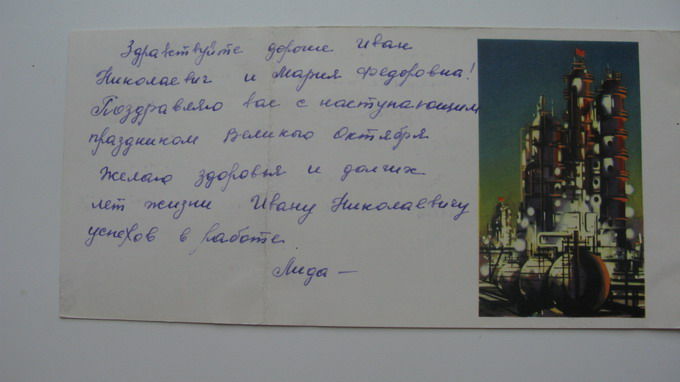 Здравствуйте дорогие Иван
Николаевич и Мария Федоровна!
Поздравляю вас с наступающим
праздником Великого Октября
Желаю здоровья и долгих
лет жизни Ивану Николаевичу
успехов в работе.
Лида —